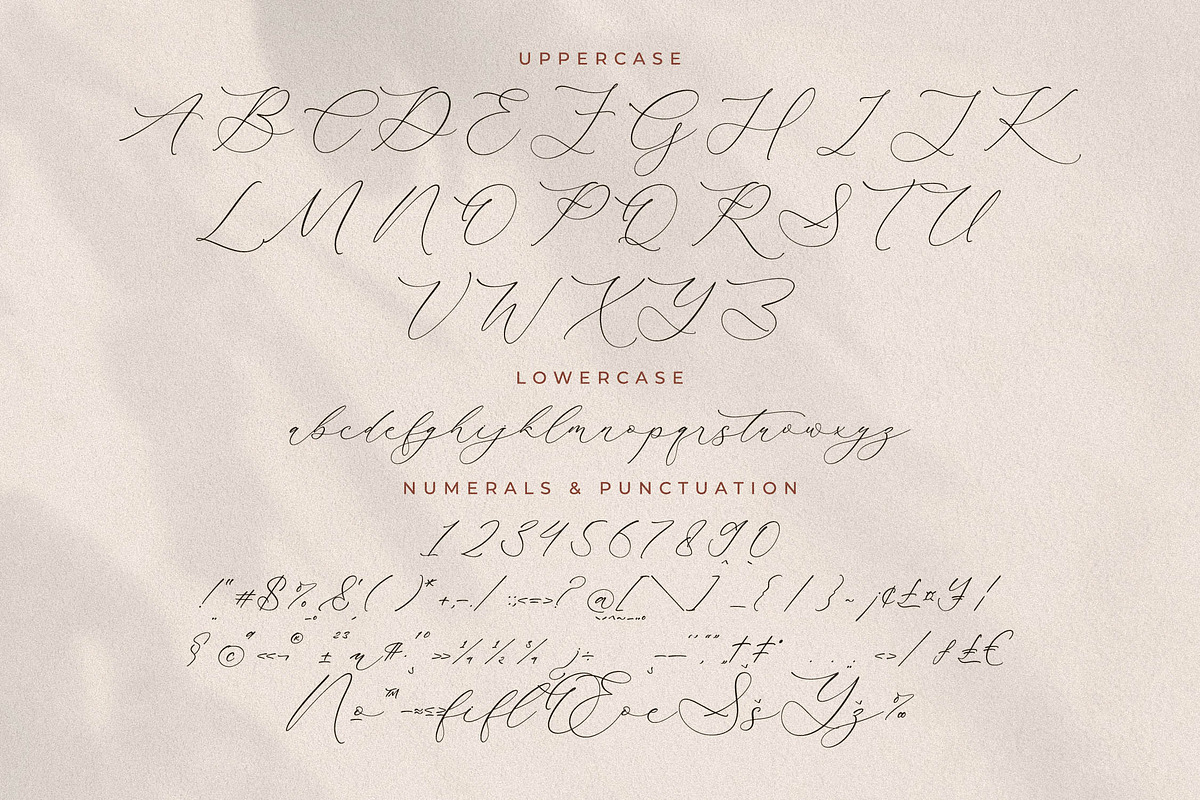 UPPERCASE
A B C D E F G H I J K
L M N O P Q R S T U
V W X Y Z
LOWERCASE
abcdefghijklmnopqrstuvwxyz
NUMERALS & PUNCTUATION
1 2 3 4 5 6 7 8 9 0
! " # $ % & ' ( ) * + , - . / : ; < = > ? @ [ \ ] _ { | } ~ ¡ ¢ £ ¤ ¥ ¦
§ © ª « ¬ ® ± ² ³ µ ¶ · ¹ º » ¼ ½ ¾ ÷ † ‡ • < > / £ €
№ ™ − ≈ ≤ ≥ fi fl Œ œ Š š Ÿ ž ‰